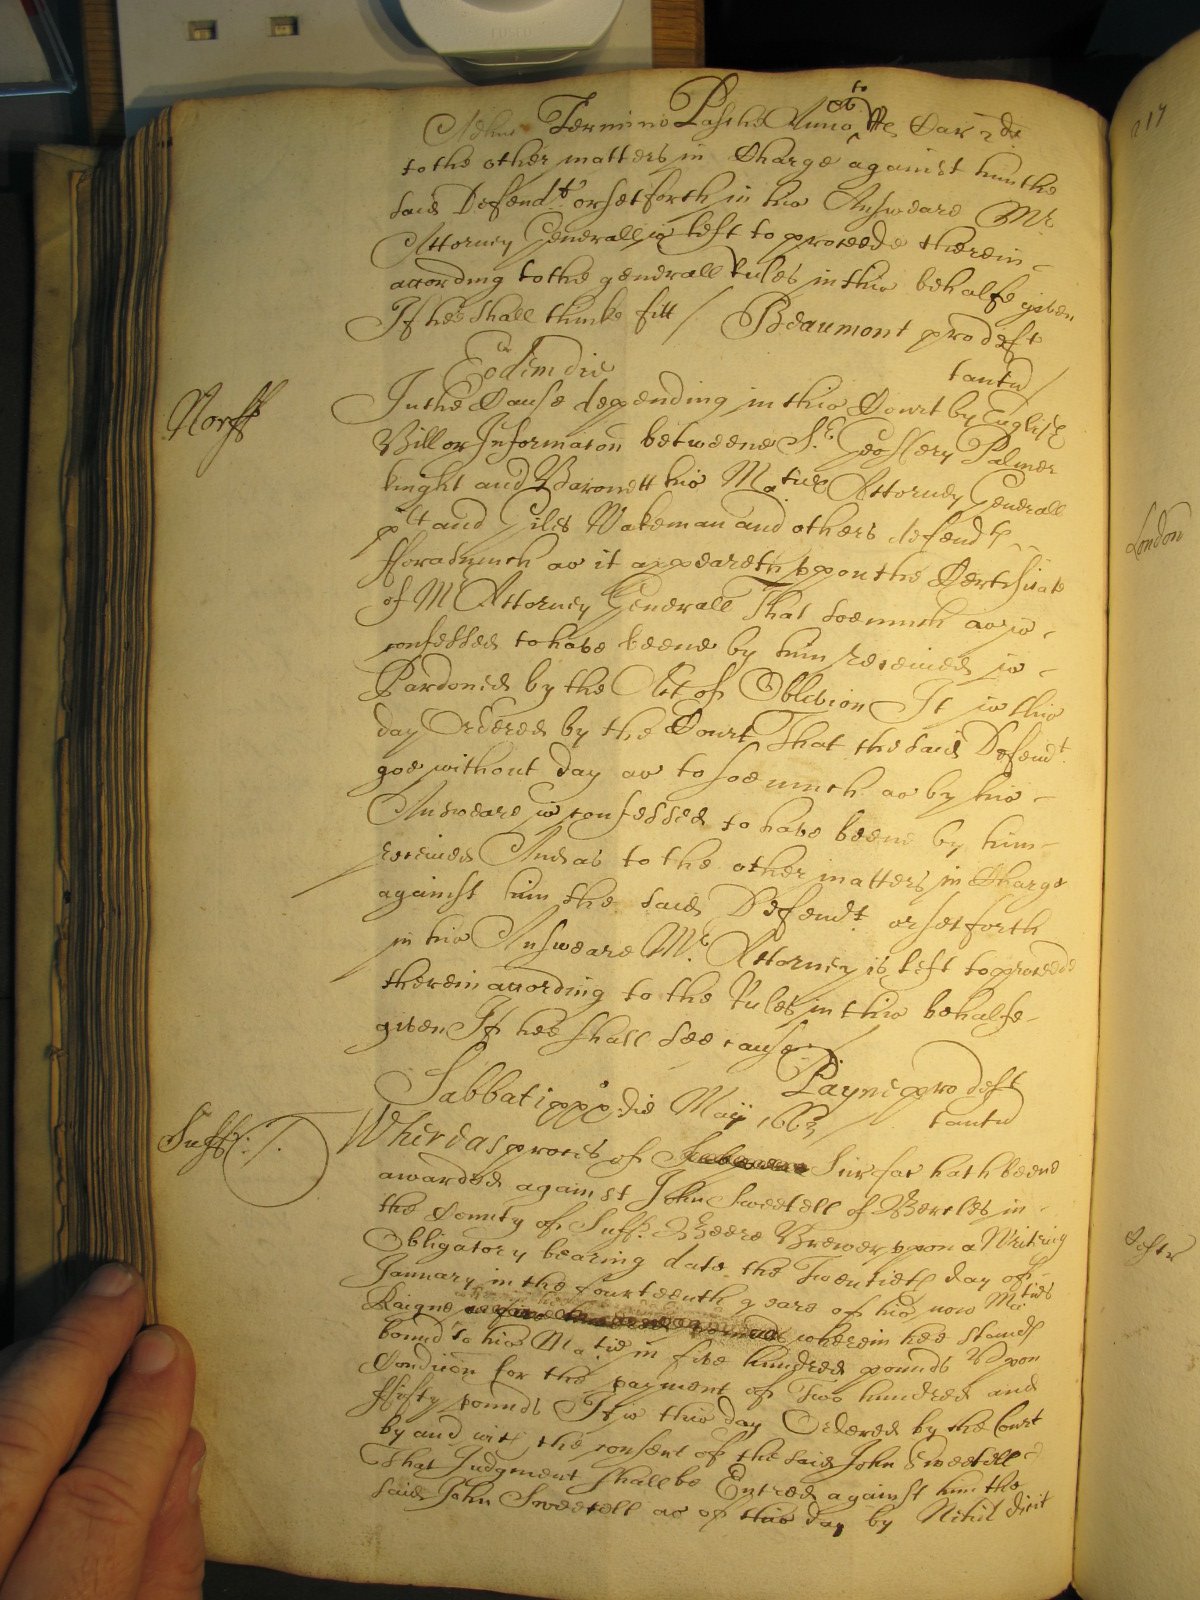 Adhuc Termino Pasche Anno xv^to Re Car 2^di
to the other matters in Charge against him the
said Defend^t. or set forth in his Answeare M^r.
Attorney Generall is left to proceede therein -
according to the generall rules in this behalfe given
If hee shall thinke fitt / Beaumont pro deft
tantu /
Eodem die
Norff
In the Cause depending in this Court by English
Bill or Informacon betweene S^r. Geoffery Palmer
knight and Baronett his Ma^ties Attorney Generall
p^lt and Giles Wakeman and others defend^ts
fforasmuch as it appeareth upon the Certificate
of M^r Attorney Generall That soe much as is -
confessed to have beene by him received is -
Pardoned by the Act of Oblivion It is this
day Ordered by the Court That the said Defend^t.
goe without day as to soe much as by his -
Answeare is confessed to have beene by him -
received And as to the other matters in Charge
against him the said Defend^t. or set forth
in his Answeare M^r. Attorney is left to proceede
therein according to the Rules in this behalfe -
given If hee shall see cause /
Payne pro deft
tantu
Sabbati ppo die Maij 1663 /
Suff: /.
Whereas proces of Scire fac hath beene
awarded against John Sweetell of Beccles in -
the County of Suff. Beere Brewer upon a Writing
Obligatory bearing date the Twentieth day of -
January in the fourteenth yeare of his now Ma^ties
Raigne wherein hee stands
bound to his Ma^tie in five hundred pounds Upon
Condicon for the payment of Two hundred and
ffifty pounds It is this day Ordered by the Court
by and with the consent of the said John Sweetell
That Judgment shall be Entred against him the
said John Sweetell as of this day by Nihil dicit
217
London